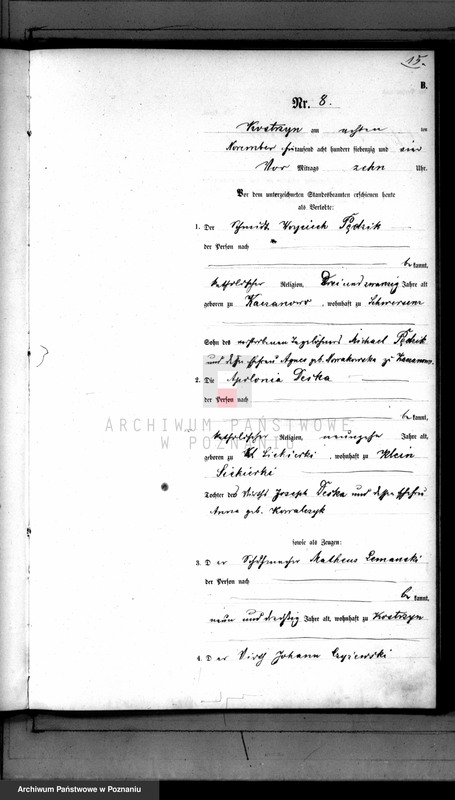 15.
B.
Nr. 8.
Kostrzyn am achten ten
November tausend acht hundert siebenzig und vier
Vor Mittags zehn Uhr.
Vor dem unterzeichneten Standesbeamten erschienen heute
als Verlobte:
1. Der Schmidt Woyciech
der Person nach
be kannt,
katholischer Religion, Dreiundzwanzig Jahre alt
geboren zu , wohnhaft zu Schwersenz
Sohn des verstorbenen Tagelöhners Michael
und dessen Ehefrau Agnes geb. Nowakowska zu
2. Die Apolonia Deska
der Person nach
be kannt,
ARCHIWUM PAŃSTWOWE
W POZNANIU
katholischer Religion, neunzehn Jahre alt,
geboren zu Kl. Siekierki, wohnhaft zu Klein
Siekierki
Tochter des Wirths Joseph Deska und dessen Ehefrau
Anna geb. Kowalczyk
sowie als Zeugen:
3. Der Schuhmacher Matheus Lemanski
der Person nach
be kannt,
neun und dreißig Jahre alt, wohnhaft zu Kostrzyn
4. Der Wirth Johann
Archiwum Państwowe w Poznaniu